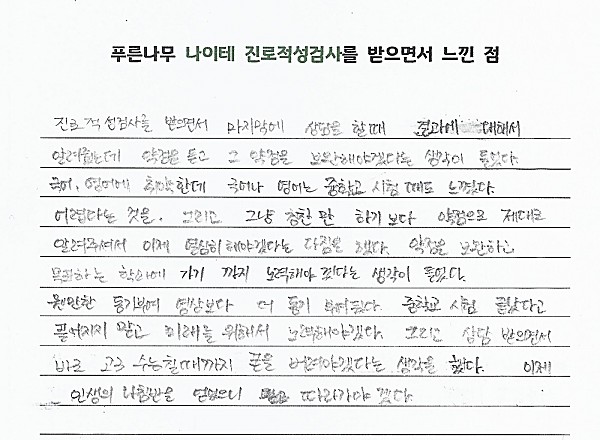 푸른나무 나이테 진로적성검사를 받으면서 느낀 점
진로적성검사를 받으면서 마지막에 상담을 할때 결과에 대해서
알려줬는데 약점을 듣고 그 약점을 보완해야겠다는 생각이 들었다.
국어, 영어에 취약한데 국어나 영어는 중학교 시험 때도 느꼈다.
어렵다는 것을. 그리고 그냥 칭찬만 하기보다 약점으로 제대로
알려주셔서 이제 열심히해야겠다는 다짐을 했다. 약점을 보완하고
목표하는 학교에 가기 까지 노력해야겠다는 생각이 들었다.
웬만한 동기부여 영상보다 더 동기 부여됬다. 중학교 시험 끝났다고
풀어지지 말고 미래를 위해서 노력해야겠다. 그리고 상담 받으면서
바로 고3 수능칠때까지 폰을 버려야겠다는 생각을 했다. 이제
인생의 나침반을 얻었으니 따라가야 겠다.